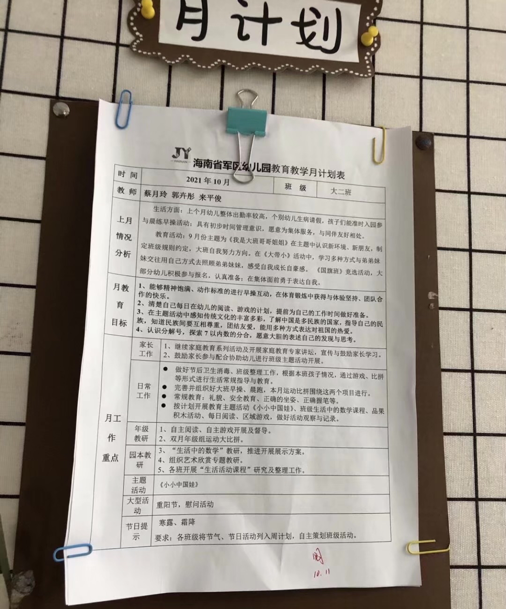 月计划
JY 海南省军区幼儿园教育教学月计划表
时 间 2021年10月 班 级 大二班
教 师 蔡月玲 郭卉彤 来平俊
上月情况分析
生活方面：上个月幼儿整体出勤率较高，个别幼儿生病请假，孩子们能准时入园参
与晨练早操活动；具有初步时间管理意识，愿意为集体服务，与同伴友好相处。
教育活动：9月份主题为《我是大班哥哥姐姐》在主题中认识新环境、新朋友，制
定班级规则约定，大班自我努力方向。在《大带小》活动中，学习多种方式与弟弟妹
妹交往用自己方式去照顾弟弟妹妹，感受自我成长自豪感。《国旗班》竞选活动，大
部分幼儿积极参与报名，认真准备；在集体面前勇于表达自我。
月教育目标
1、能够精神饱满、动作标准的进行早操互动，在体育锻炼中获得与体验坚持、团队合
作的快乐。
2、清楚自己每日在幼儿的阅读、游戏的计划，提前为自己的工作时间做好准备。
3、在主题活动中感知传统文化的丰富多彩，了解中国是多民族的国家，指导自己的民
族，知道民族间要互相尊重，团结友爱，能用多种方式表达对祖国的热爱。
4、认识分解号，探索7以内数的分合，愿意大胆的表述自己的发现与思考。
月工作重点
家长工作
1、继续家庭教育系列活动及开展家庭教育专家讲坛，宣传与鼓励家长学习。
2、鼓励家长参与配合协助幼儿进行班级主题活动开展。
日常工作
● 做好节后卫生消毒、班级整理工作，根据本班孩子情况，通过游戏、比拼
等形式进行生活常规指导与教育。
● 完善并组织好大班早操、晨跑，本月运动比拼围绕这两个项进行。
● 常规教育：礼貌、安全教育、正确的坐姿、正确握笔等。
● 按计划开展教育主题活动《小小中国娃》、班级生活中的数学课程、品果
积木活动、每日阅读、区域游戏，做好活动观察与记录。
年级教研
1、自主阅读、自主游戏开展及督导。
2、双月年级组运动大比拼。
园本教研
3、“生活中的数学”教研，推进开展展示方案。
4、组织艺术欣赏专题教研。
5、各班开展“生活活动课程”研究及整理工作。
主题活动 《小小中国娃》
大型活动 重阳节，慰问活动
节日提示
寒露、霜降
要求：各班级将节气、节日活动列入周计划，自主策划班级活动。
10.11